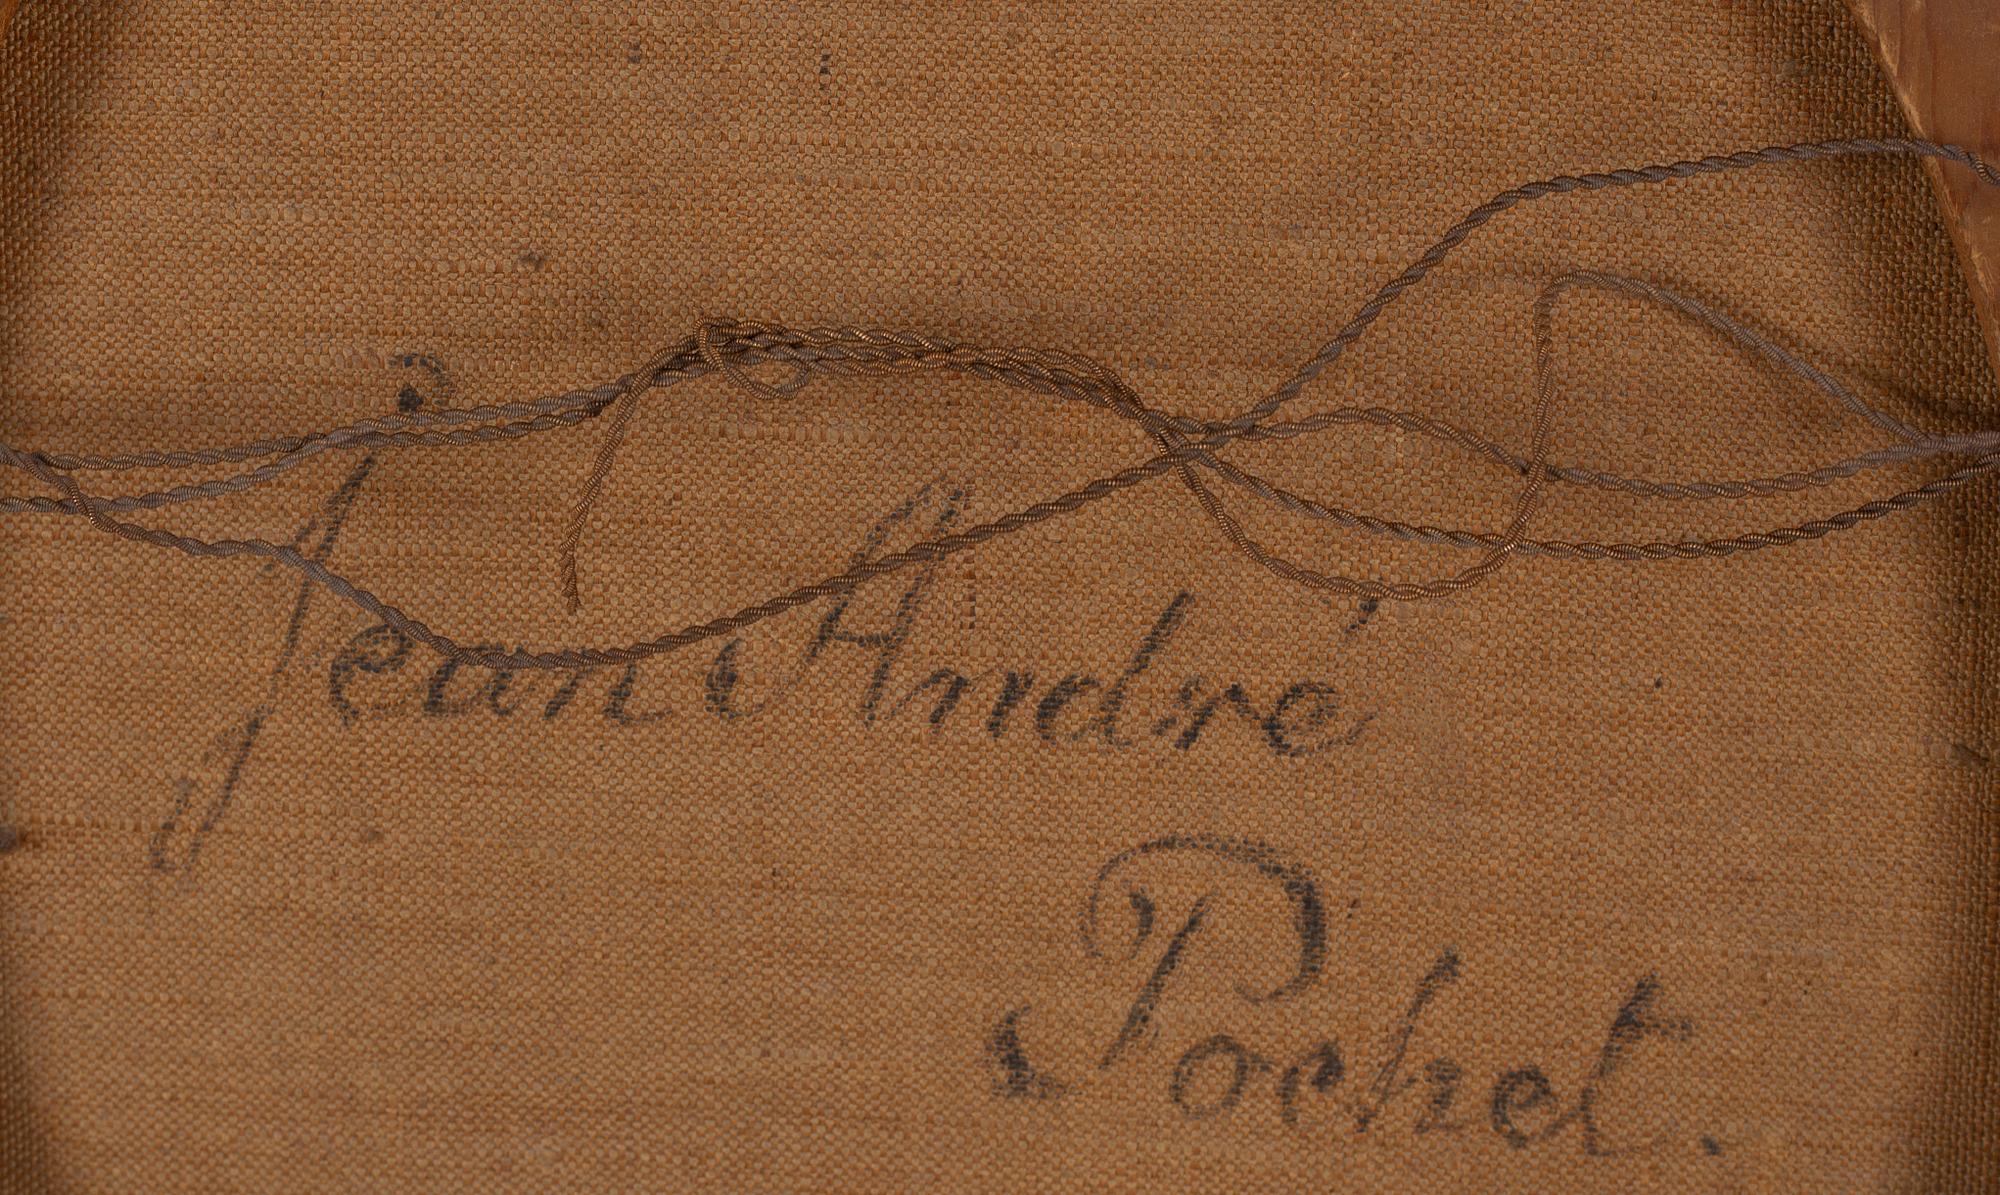 Jean André
Pochet.